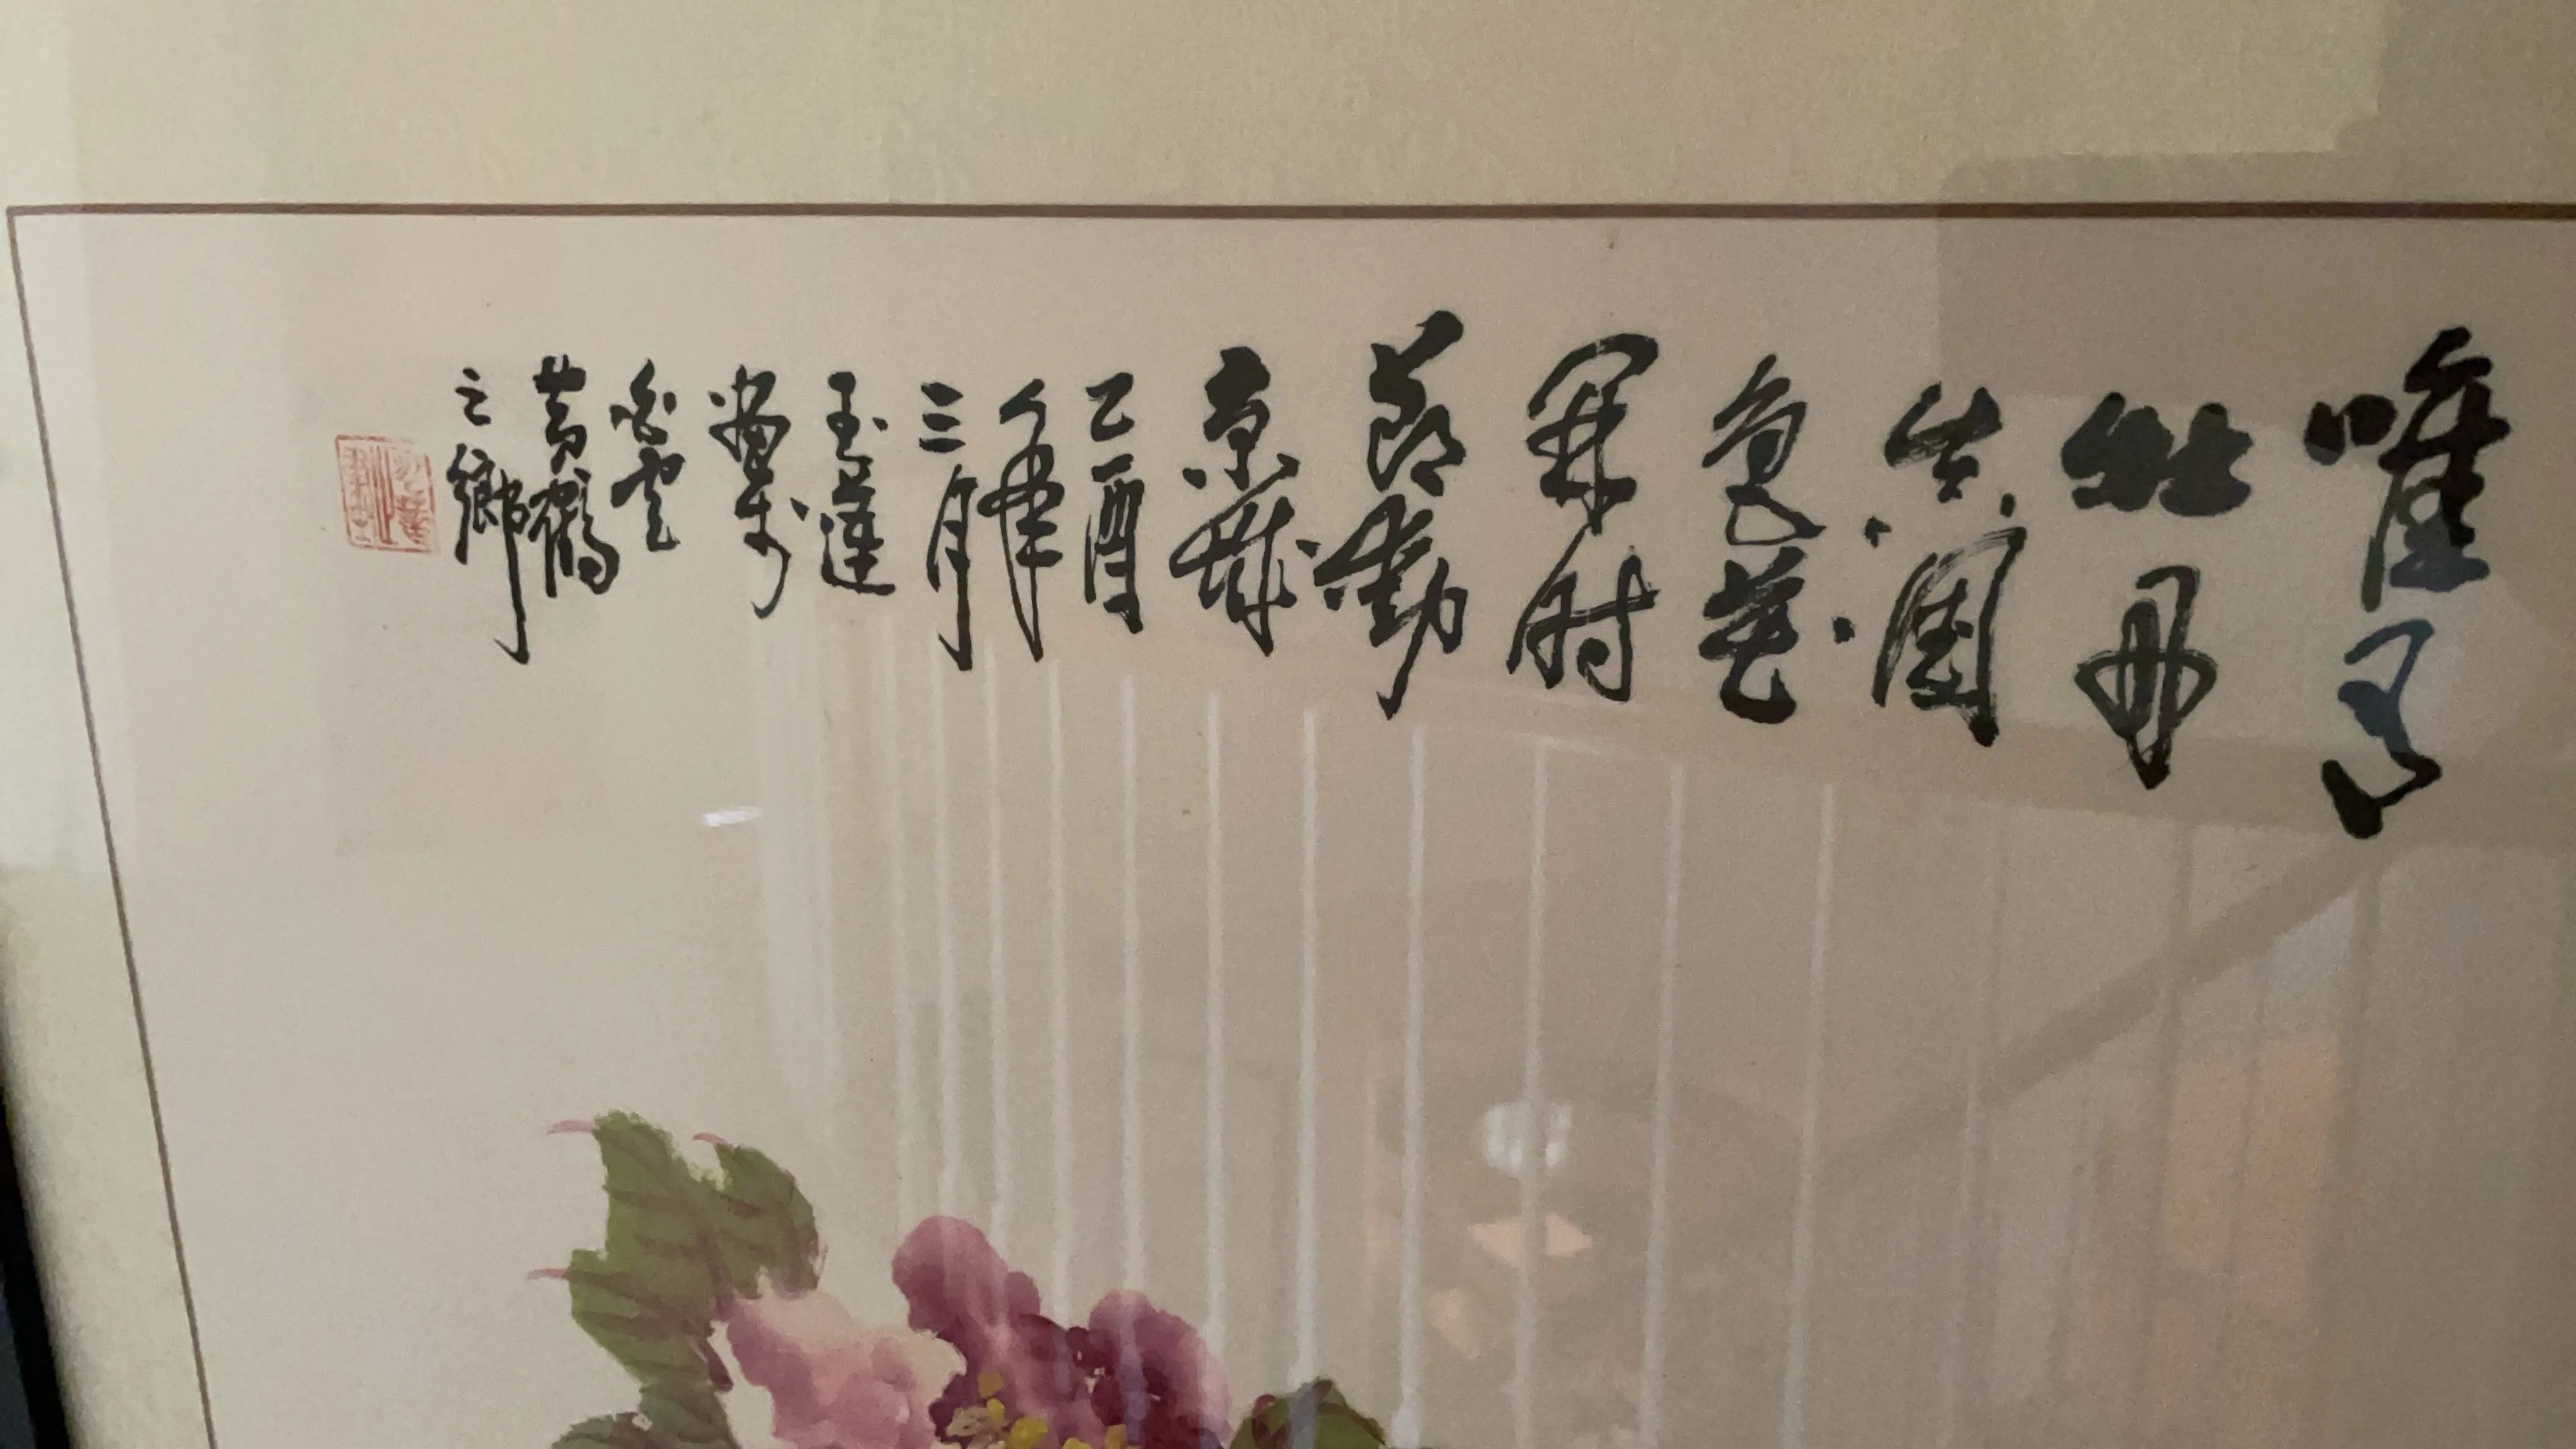 唯有
牡丹
真國
色花
開時
節動
京城
乙酉
年
三月
玉蓮
寫於
白雲
黄鶴
之鄉